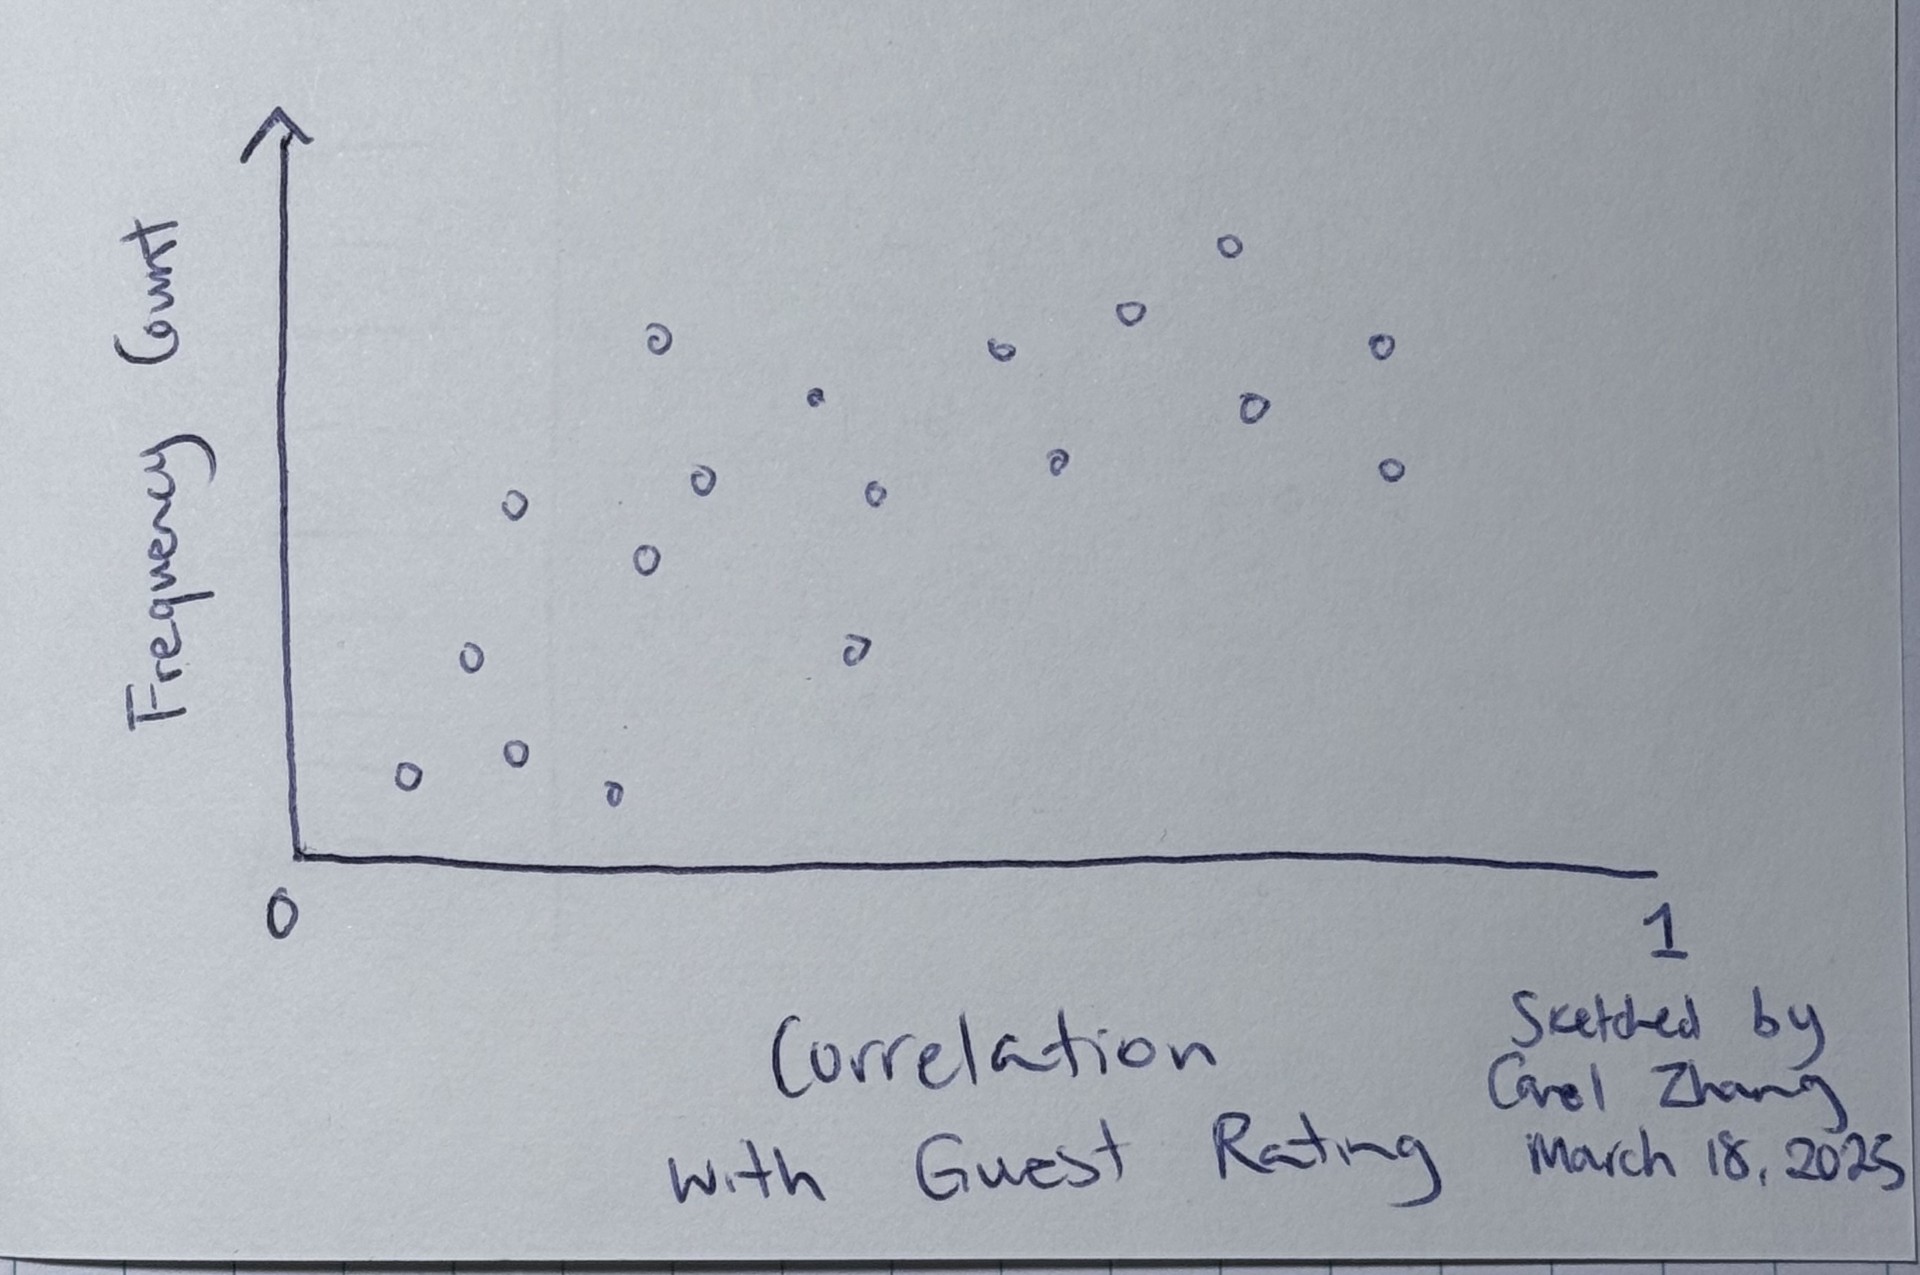 Frequency Count
0
1
Correlation
with Guest Rating
Sketched by
Carol Zhang
March 18, 2025